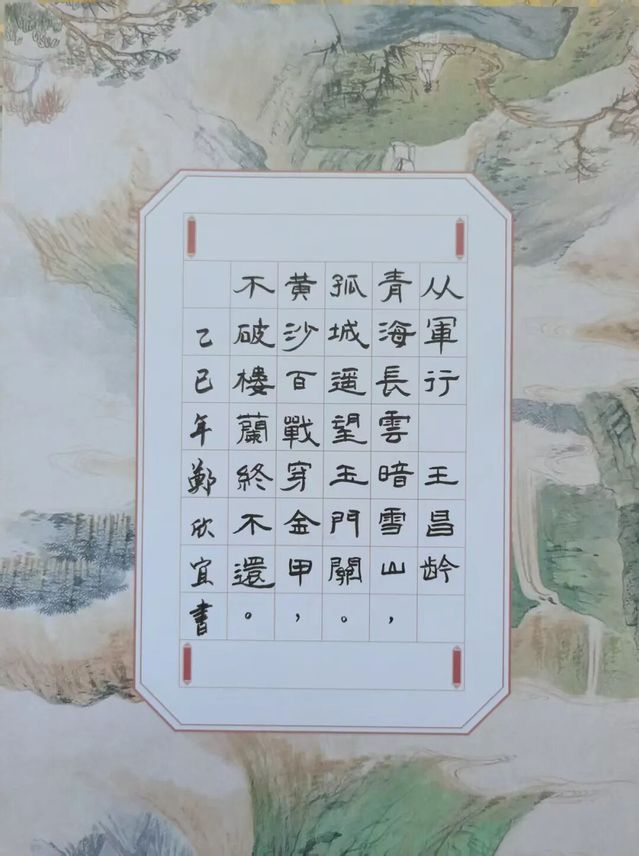 从軍行 王昌龄
青海長雲暗雪山，
孤城遥望玉門關。
黄沙百戰穿金甲，
不破樓蘭終不還。
乙巳年鄭欣宜書